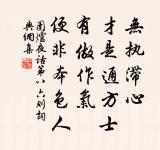 無執滯心
才是通方士
有做作氣
便非本色人
圍爐夜話第八六則詞
典網集